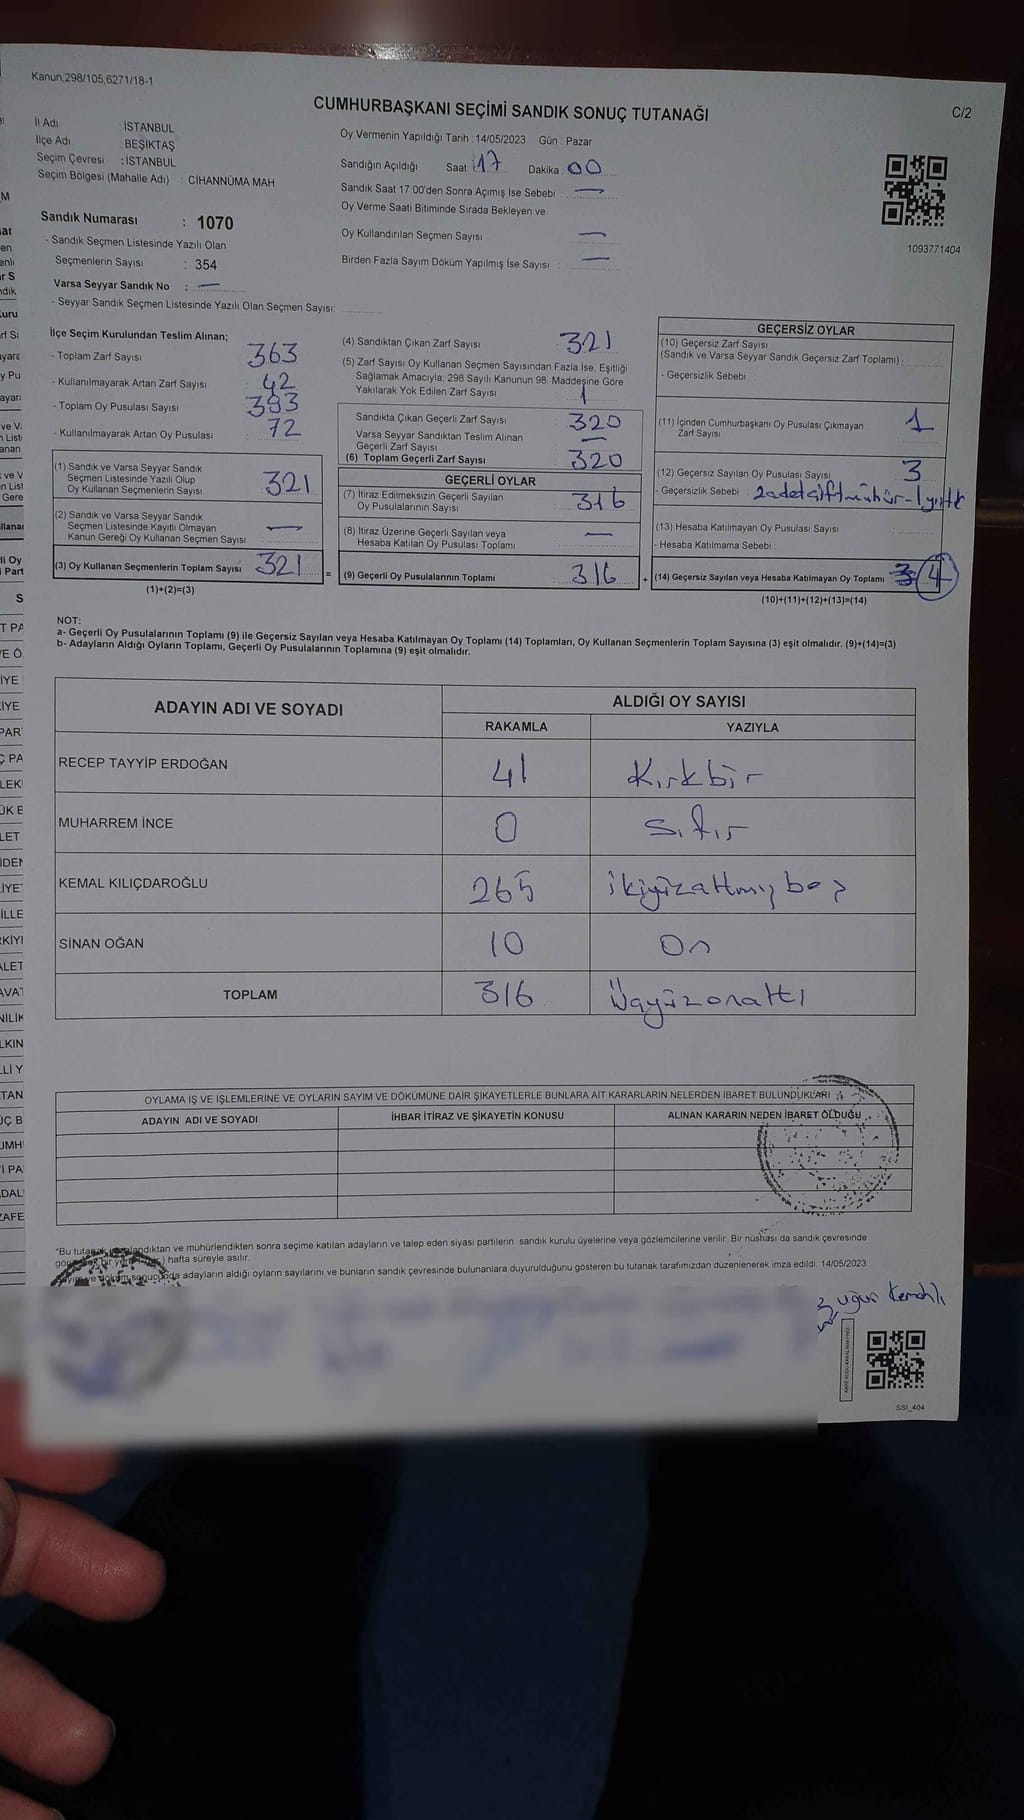 Kanun,298/105,6271/18-1
CUMHURBAŞKANI SEÇİMİ SANDIK SONUÇ TUTANAĞI
C/2
İl Adı : İSTANBUL
İlçe Adı : BEŞİKTAŞ
Seçim Çevresi : İSTANBUL
Seçim Bölgesi (Mahalle Adı) : CİHANNÜMA MAH.
Sandık Numarası : 1070
- Sandık Seçmen Listesinde Yazılı Olan
Seçmenlerin Sayısı : 354
Varsa Seyyar Sandık No : —
- Seyyar Sandık Seçmen Listesinde Yazılı Olan Seçmen Sayısı:
Oy Vermenin Yapıldığı Tarih : 14/05/2023 Gün : Pazar
Sandığın Açıldığı Saat : 17 Dakika : 00
Sandık Saat 17.00'den Sonra Açımış İse Sebebi : —
Oy Verme Saati Bitiminde Sırada Bekleyen ve
Oy Kullandırılan Seçmen Sayısı : —
Birden Fazla Sayım Döküm Yapılmış İse Sayısı : —
1093771404
İlçe Seçim Kurulundan Teslim Alınan;
- Toplam Zarf Sayısı 363
- Kullanılmayarak Artan Zarf Sayısı 42
- Toplam Oy Pusulası Sayısı 393
- Kullanılmayarak Artan Oy Pusulası 72
(1) Sandık ve Varsa Seyyar Sandık
Seçmen Listesinde Yazılı Olup
Oy Kullanan Seçmenlerin Sayısı 321
(2) Sandık ve Varsa Seyyar Sandık
Seçmen Listesinde Kayıtlı Olmayan
Kanun Gereği Oy Kullanan Seçmen Sayısı —
(3) Oy Kullanan Seçmenlerin Toplam Sayısı 321
(1)+(2)=(3)
(4) Sandıktan Çıkan Zarf Sayısı 321
(5) Zarf Sayısı Oy Kullanan Seçmen Sayısından Fazla İse, Eşitliği
Sağlamak Amacıyla; 298 Sayılı Kanunun 98. Maddesine Göre
Yakılarak Yok Edilen Zarf Sayısı 1
Sandıkta Çıkan Geçerli Zarf Sayısı 320
Varsa Seyyar Sandıktan Teslim Alınan
Geçerli Zarf Sayısı —
(6) Toplam Geçerli Zarf Sayısı 320
GEÇERLİ OYLAR
(7) İtiraz Edilmeksizin Geçerli Sayılan
Oy Pusulalarının Sayısı 316
(8) İtiraz Üzerine Geçerli Sayılan veya
Hesaba Katılan Oy Pusulası Toplamı —
= (9) Geçerli Oy Pusulalarının Toplamı 316
GEÇERSİZ OYLAR
(10) Geçersiz Zarf Sayısı
(Sandık ve Varsa Seyyar Sandık Geçersiz Zarf Toplamı) :
- Geçersizlik Sebebi :
(11) İçinden Cumhurbaşkanı Oy Pusulası Çıkmayan
Zarf Sayısı 1
(12) Geçersiz Sayılan Oy Pusulası Sayısı 3
- Geçersizlik Sebebi : 2 adet çift mühür - 1 yırtık
(13) Hesaba Katılmayan Oy Pusulası Sayısı
- Hesaba Katılmama Sebebi :
+ (14) Geçersiz Sayılan veya Hesaba Katılmayan Oy Toplamı 4
(10)+(11)+(12)+(13)=(14)
NOT:
a- Geçerli Oy Pusulalarının Toplamı (9) ile Geçersiz Sayılan veya Hesaba Katılmayan Oy Toplamı (14) Toplamları, Oy Kullanan Seçmenlerin Toplam Sayısına (3) eşit olmalıdır. (9)+(14)=(3)
b- Adayların Aldığı Oyların Toplamı, Geçerli Oy Pusulalarının Toplamına (9) eşit olmalıdır.
ADAYIN ADI VE SOYADI
ALDIĞI OY SAYISI
RAKAMLA YAZIYLA
RECEP TAYYİP ERDOĞAN 41 Kırkbir
MUHARREM İNCE 0 Sıfır
KEMAL KILIÇDAROĞLU 265 İkiyüzaltmışbeş
SİNAN OĞAN 10 On
TOPLAM 316 Üçyüzonaltı
OYLAMA İŞ VE İŞLEMLERİNE VE OYLARIN SAYIM VE DÖKÜMÜNE DAİR ŞİKAYETLERLE BUNLARA AİT KARARLARIN NELERDEN İBARET BULUNDUKLARI
ADAYIN ADI VE SOYADI İHBAR İTİRAZ VE ŞİKAYETİN KONUSU ALINAN KARARIN NEDEN İBARET OLDUĞU
*Bu tutanak mühürlendikten sonra seçime katılan adayların ve talep eden siyasi partilerin sandık kurulu üyelerine veya gözlemcilerine verilir. Bir nüshası da sandık çevresinde
hafta süreyle asılır.
adayların aldığı oyların sayılarını ve bunların sandık çevresinde bulunanlara duyurulduğunu gösteren bu tutanak tarafımızdan düzenlenerek imza edildi. 14/05/2023
uğur
SSI_404